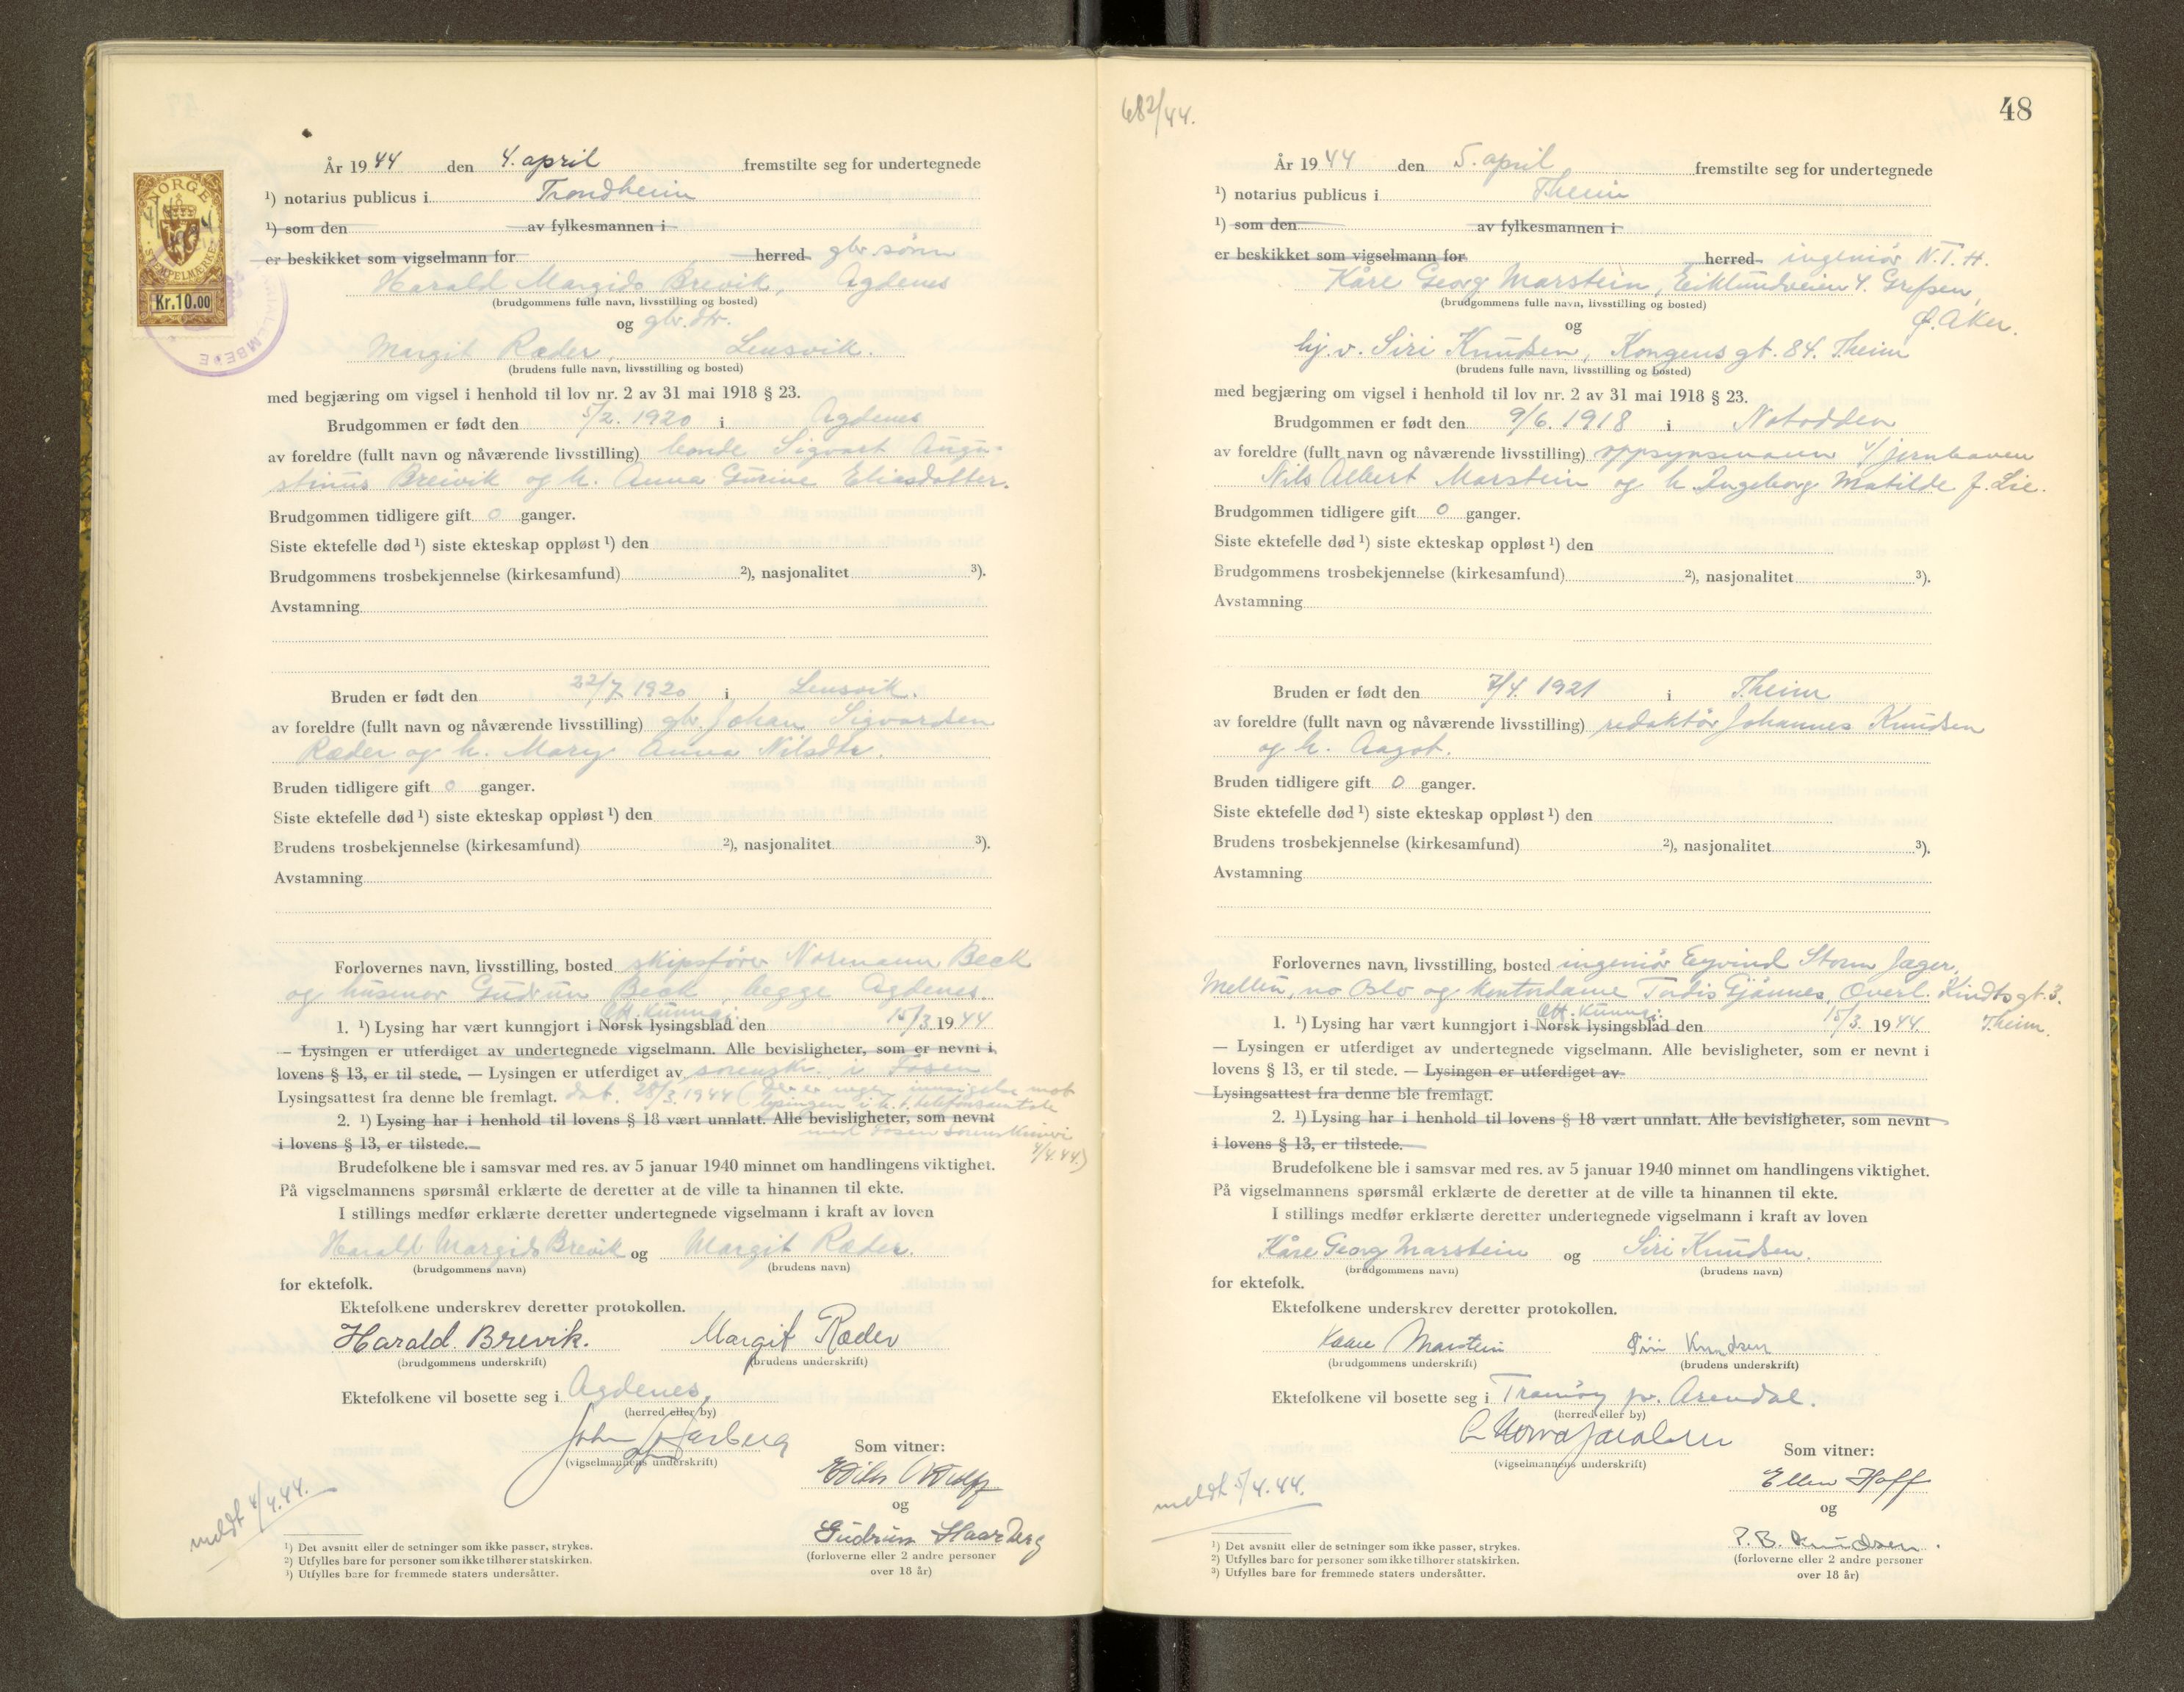 År 1944 den 4. april fremstilte seg for undertegnede
¹) notarius publicus i Trondheim
¹) som den av fylkesmannen i
er beskikket som vigselmann for herred gbr.sønn
Harald Margido Brevik, Agdenes
(brudgommens fulle navn, livsstilling og bosted)
og gbr.dtr.
Margit Ræder, Lensvik.
(brudens fulle navn, livsstilling og bosted)
med begjæring om vigsel i henhold til lov nr. 2 av 31 mai 1918 § 23.
Brudgommen er født den 5/2. 1920 i Agdenes
av foreldre (fullt navn og nåværende livsstilling) bonde Sigvart Augu-
stinus Breivik og h. Anna Gurine Eliasdatter.
Brudgommen tidligere gift 0 ganger.
Siste ektefelle død ¹) siste ekteskap oppløst ¹) den
Brudgommens trosbekjennelse (kirkesamfund) ²), nasjonalitet ³).
Avstamning
Bruden er født den 22/7 1920 i Lensvik.
av foreldre (fullt navn og nåværende livsstilling) gbr. Johan Sigvardsen
Ræder og h. Mary Anna Nilsdtr.
Bruden tidligere gift 0 ganger.
Siste ektefelle død ¹) siste ekteskap oppløst ¹) den
Brudens trosbekjennelse (kirkesamfund) ²), nasjonalitet ³).
Avstamning
Forlovernes navn, livsstilling, bosted skipsfører Normann Beck
og husmor Gudrun Beck, begge Agdenes.
Off. kunngj.
1. ¹) Lysing har vært kunngjort i Norsk lysingsblad den 15/3 1944
— Lysingen er utferdiget av undertegnede vigselmann. Alle bevisligheter, som er nevnt i
lovens § 13, er til stede. — Lysingen er utferdiget av sorenskr. i Fosen
Lysingsattest fra denne ble fremlagt. dat. 28/3 1944 (Der er ingen innsigelse mot
lysingen i h.t. telefonsamtale
2. ¹) Lysing har i henhold til lovens § 18 vært unnlatt. Alle bevisligheter, som nevnt
med Fosen sorenskriveri
i lovens § 13, er tilstede.— 4/4.44.)
Brudefolkene ble i samsvar med res. av 5 januar 1940 minnet om handlingens viktighet.
På vigselmannens spørsmål erklærte de deretter at de ville ta hinannen til ekte.
I stillings medfør erklærte deretter undertegnede vigselmann i kraft av loven
Harald Margido Brevik og Margit Ræder.
(brudgommens navn) (brudens navn)
for ektefolk.
Ektefolkene underskrev deretter protokollen.
Harald. Brevik. Margit Ræder
(brudgommens underskrift) (brudens underskrift)
Ektefolkene vil bosette seg i Agdenes,
(herred eller by)
John Haarberg
(vigselmannens underskrift)
Som vitner:
og
Gudrun Haarberg
(forloverne eller 2 andre personer
over 18 år)
meldt 4/4.44.
¹) Det avsnitt eller de setninger som ikke passer, strykes.
²) Utfylles bare for personer som ikke tilhører statskirken.
³) Utfylles bare for fremmede staters undersåtter.
NORGE
STEMPELMÆRKE
Kr.10.00
682/44.
48
År 1944 den 5. april fremstilte seg for undertegnede
¹) notarius publicus i T.heim
¹) som den av fylkesmannen i
er beskikket som vigselmann for herred ingeniør N.T.H.
Kåre Georg Marstein, Eiklundveien 4. Grefsen,
(brudgommens fulle navn, livsstilling og bosted)
Ø. Aker.
og
hj.v. Siri Knudsen, Kongensgt. 84. T.heim
(brudens fulle navn, livsstilling og bosted)
med begjæring om vigsel i henhold til lov nr. 2 av 31 mai 1918 § 23.
Brudgommen er født den 9/6. 1918 i Notodden
av foreldre (fullt navn og nåværende livsstilling) oppsynsmann v/jernhaven
Nils Albert Marstein og h. Ingeborg Matilde f. Lie.
Brudgommen tidligere gift 0 ganger.
Siste ektefelle død ¹) siste ekteskap oppløst ¹) den
Brudgommens trosbekjennelse (kirkesamfund) ²), nasjonalitet ³).
Avstamning
Bruden er født den 7/4. 1921 i T.heim
av foreldre (fullt navn og nåværende livsstilling) redaktør Johannes Knudsen
og h. Aagot.
Bruden tidligere gift 0 ganger.
Siste ektefelle død ¹) siste ekteskap oppløst ¹) den
Brudens trosbekjennelse (kirkesamfund) ²), nasjonalitet ³).
Avstamning
Forlovernes navn, livsstilling, bosted ingeniør Eyvind Storm Jæger,
Mellin, no Oslo og kontordame Tordis Gjønnes, Overl. Kindtsgt. 3.
T.heim.
Off. kunngj.
1. ¹) Lysing har vært kunngjort i Norsk lysingsblad den 15/3. 1944.
— Lysingen er utferdiget av undertegnede vigselmann. Alle bevisligheter, som er nevnt i
lovens § 13, er til stede. — Lysingen er utferdiget av
Lysingsattest fra denne ble fremlagt.
2. ¹) Lysing har i henhold til lovens § 18 vært unnlatt. Alle bevisligheter, som nevnt
i lovens § 13, er tilstede.—
Brudefolkene ble i samsvar med res. av 5 januar 1940 minnet om handlingens viktighet.
På vigselmannens spørsmål erklærte de deretter at de ville ta hinannen til ekte.
I stillings medfør erklærte deretter undertegnede vigselmann i kraft av loven
Kåre Georg Marstein og Siri Knudsen.
(brudgommens navn) (brudens navn)
for ektefolk.
Ektefolkene underskrev deretter protokollen.
Kaare Marstein Siri Knudsen
(brudgommens underskrift) (brudens underskrift)
Ektefolkene vil bosette seg i Tromøy pr. Arendal.
(herred eller by)
(vigselmannens underskrift)
Som vitner:
Ellen Hoff
og
P. B. Knudsen.
(forloverne eller 2 andre personer
over 18 år)
meldt 5/4.44.
¹) Det avsnitt eller de setninger som ikke passer, strykes.
²) Utfylles bare for personer som ikke tilhører statskirken.
³) Utfylles bare for fremmede staters undersåtter.